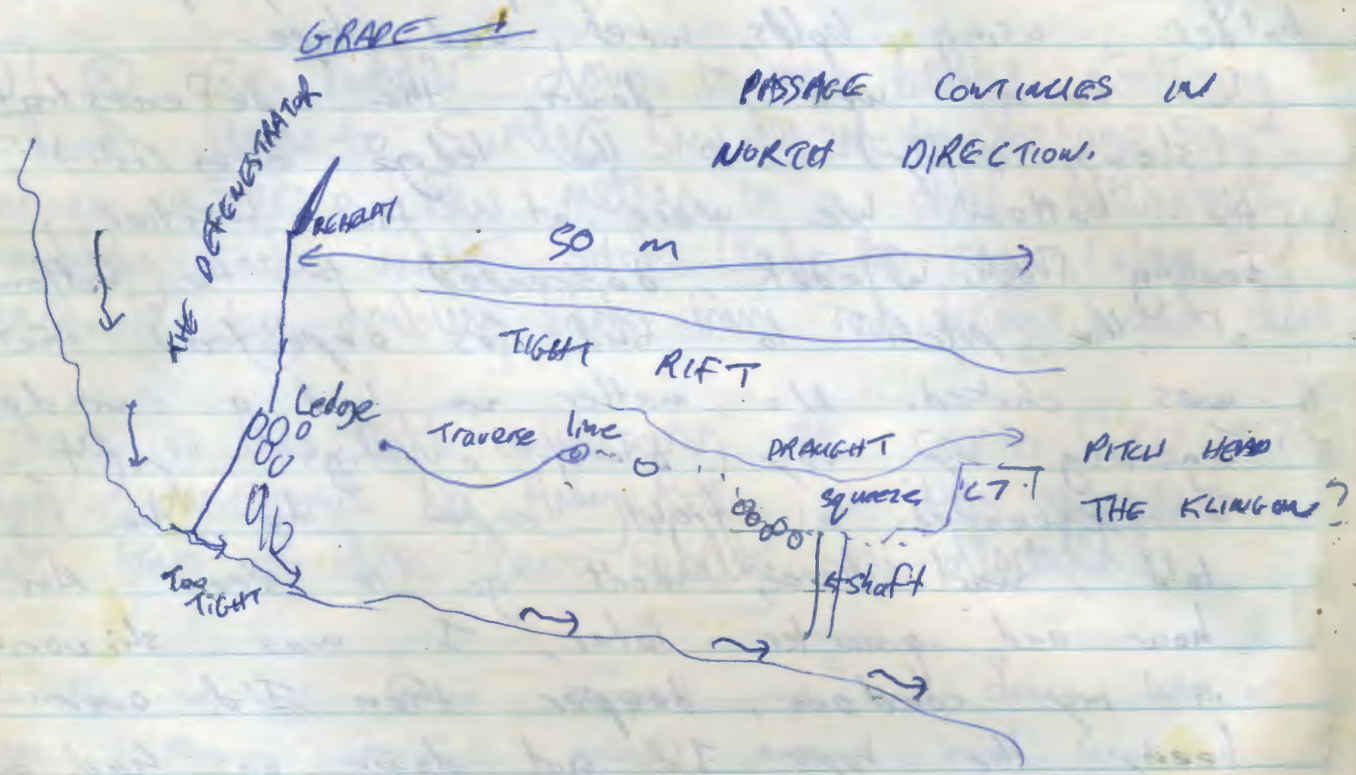 GRADE
PASSAGE CONTINUES IN
NORTH DIRECTION.
THE DEFENESTRATOR
REBELAY
50 m
TIGHT RIFT
Ledge
Traverse line
DRAUGHT
squeeze
PITCH HEAD
THE KLINGON?
Too
TIGHT
shaft